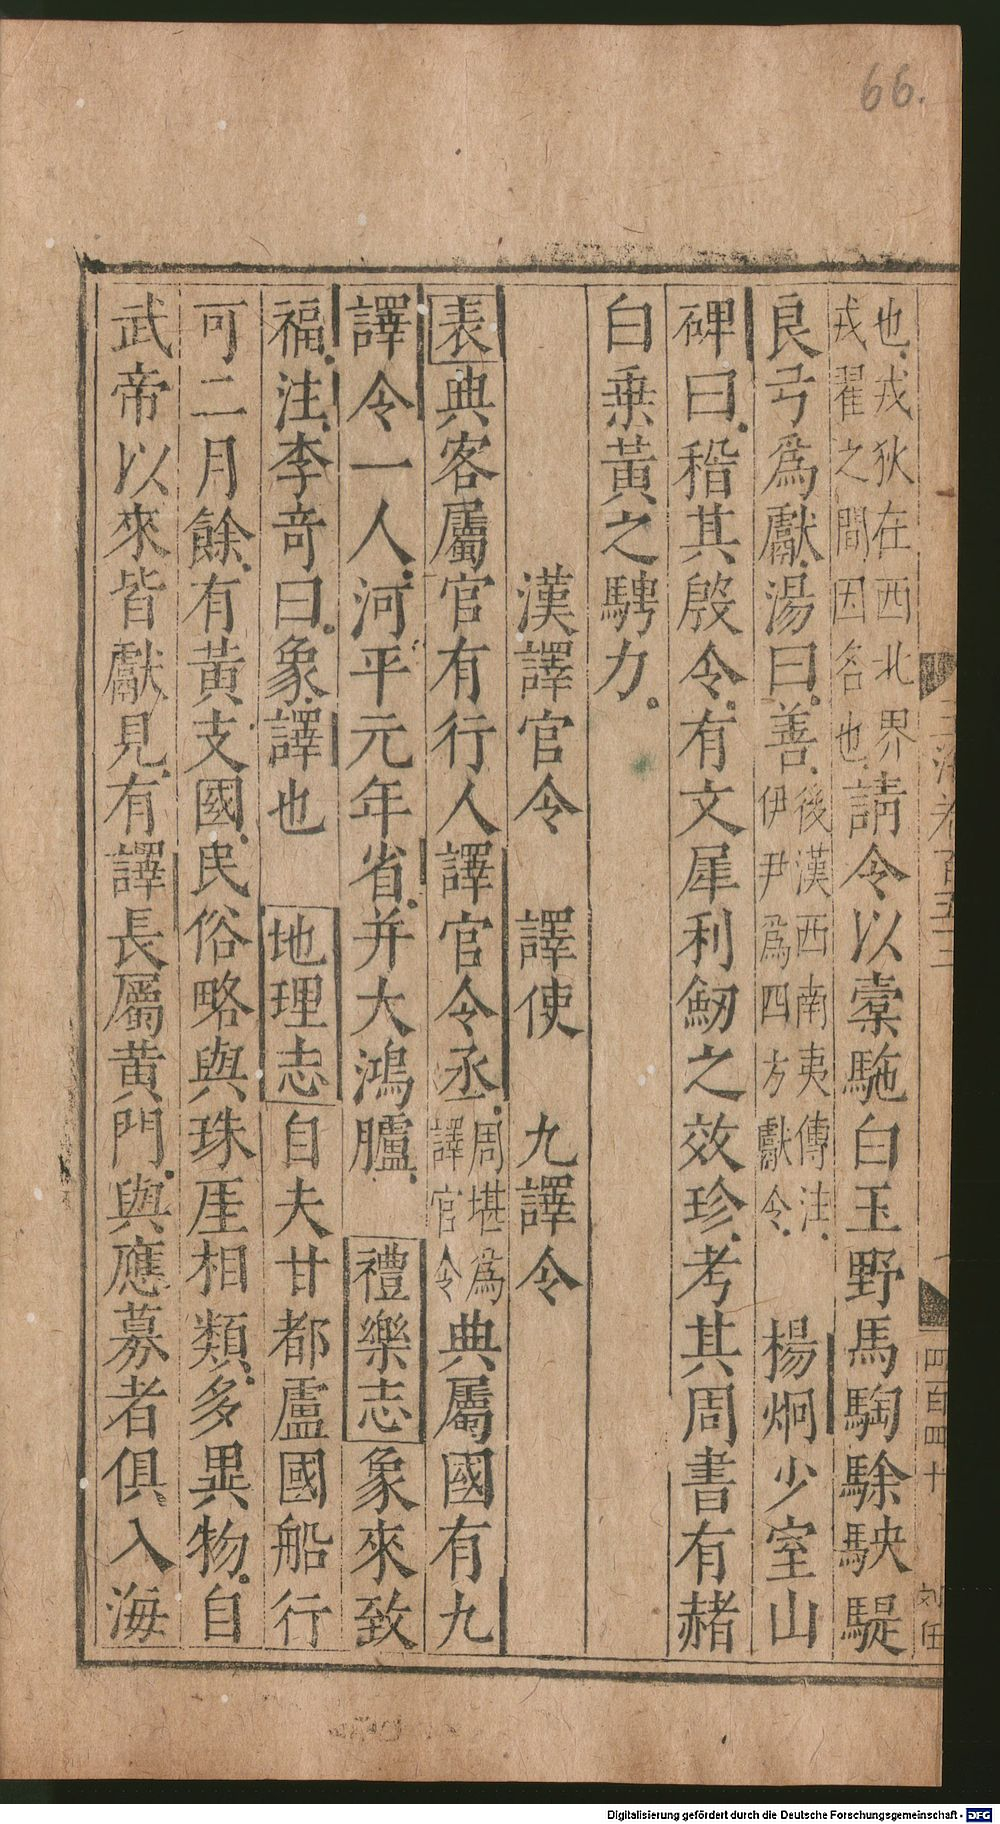 66.
也戎狄在西北界
戎翟之間因名也
請令以橐駞白玉野馬騊駼駃騠
良弓爲獻湯曰善
後漢西南夷傳注
伊尹爲四方獻令
楊炯少室山
碑曰稽其殷令有文犀利劒之效珍考其周書有赭
白乗黃之騁力
漢譯官令 譯使 九譯令
表典客屬官有行人譯官令丞
周堪爲
譯官令
典屬國有九
譯令一人河平元年省并大鴻臚 禮樂志象來致
福注李奇曰象譯也 地理志自夫甘都盧國船行
可二月餘有黃支國民俗略與珠厓相類多異物自
武帝以來皆獻見有譯長屬黄門與應募者俱入海
四百四十
Digitalisierung gefördert durch die Deutsche Forschungsgemeinschaft - DFG